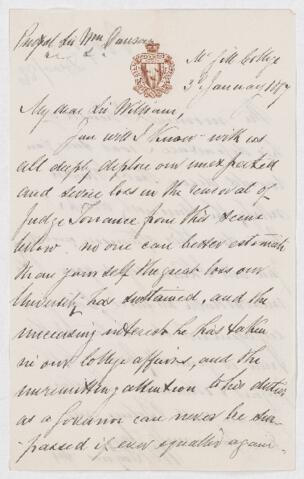 Sir Wm Dawson
McGill College
3d January 1887
My dear Sir William,
You will I know with us
all deeply deplore our unexpected
and severe loss in the removal of
Judge Torrance from this scene
below no one can better estimate
than yourself the great loss our
University has sustained, and the
unceasing interest he has taken
in our College affairs, and the
unremitting attention to his duties
as a Governor can never be sur-
passed if ever equalled again.